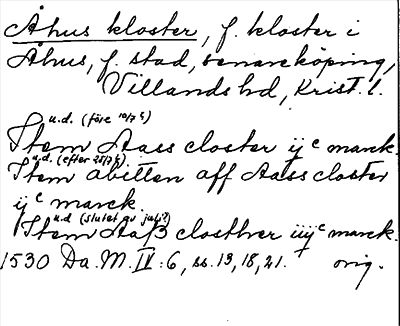 Åhus kloster, f. kloster i
Åhus, f. stad, senare köping,
Villands hd, Krist. l.
u.d. (före 10/7 ?)
Item Aass closter ijᶜ marck.
u.d. (efter 25/7 ?)
Item abitten aff Aass closter
ijᶜ marck.
u.d (slutet av juli?)
Item Aaß closthrer iiijᶜ marck.
1530 Da. M. IV : 6, ss. 13, 18, 21. orig.